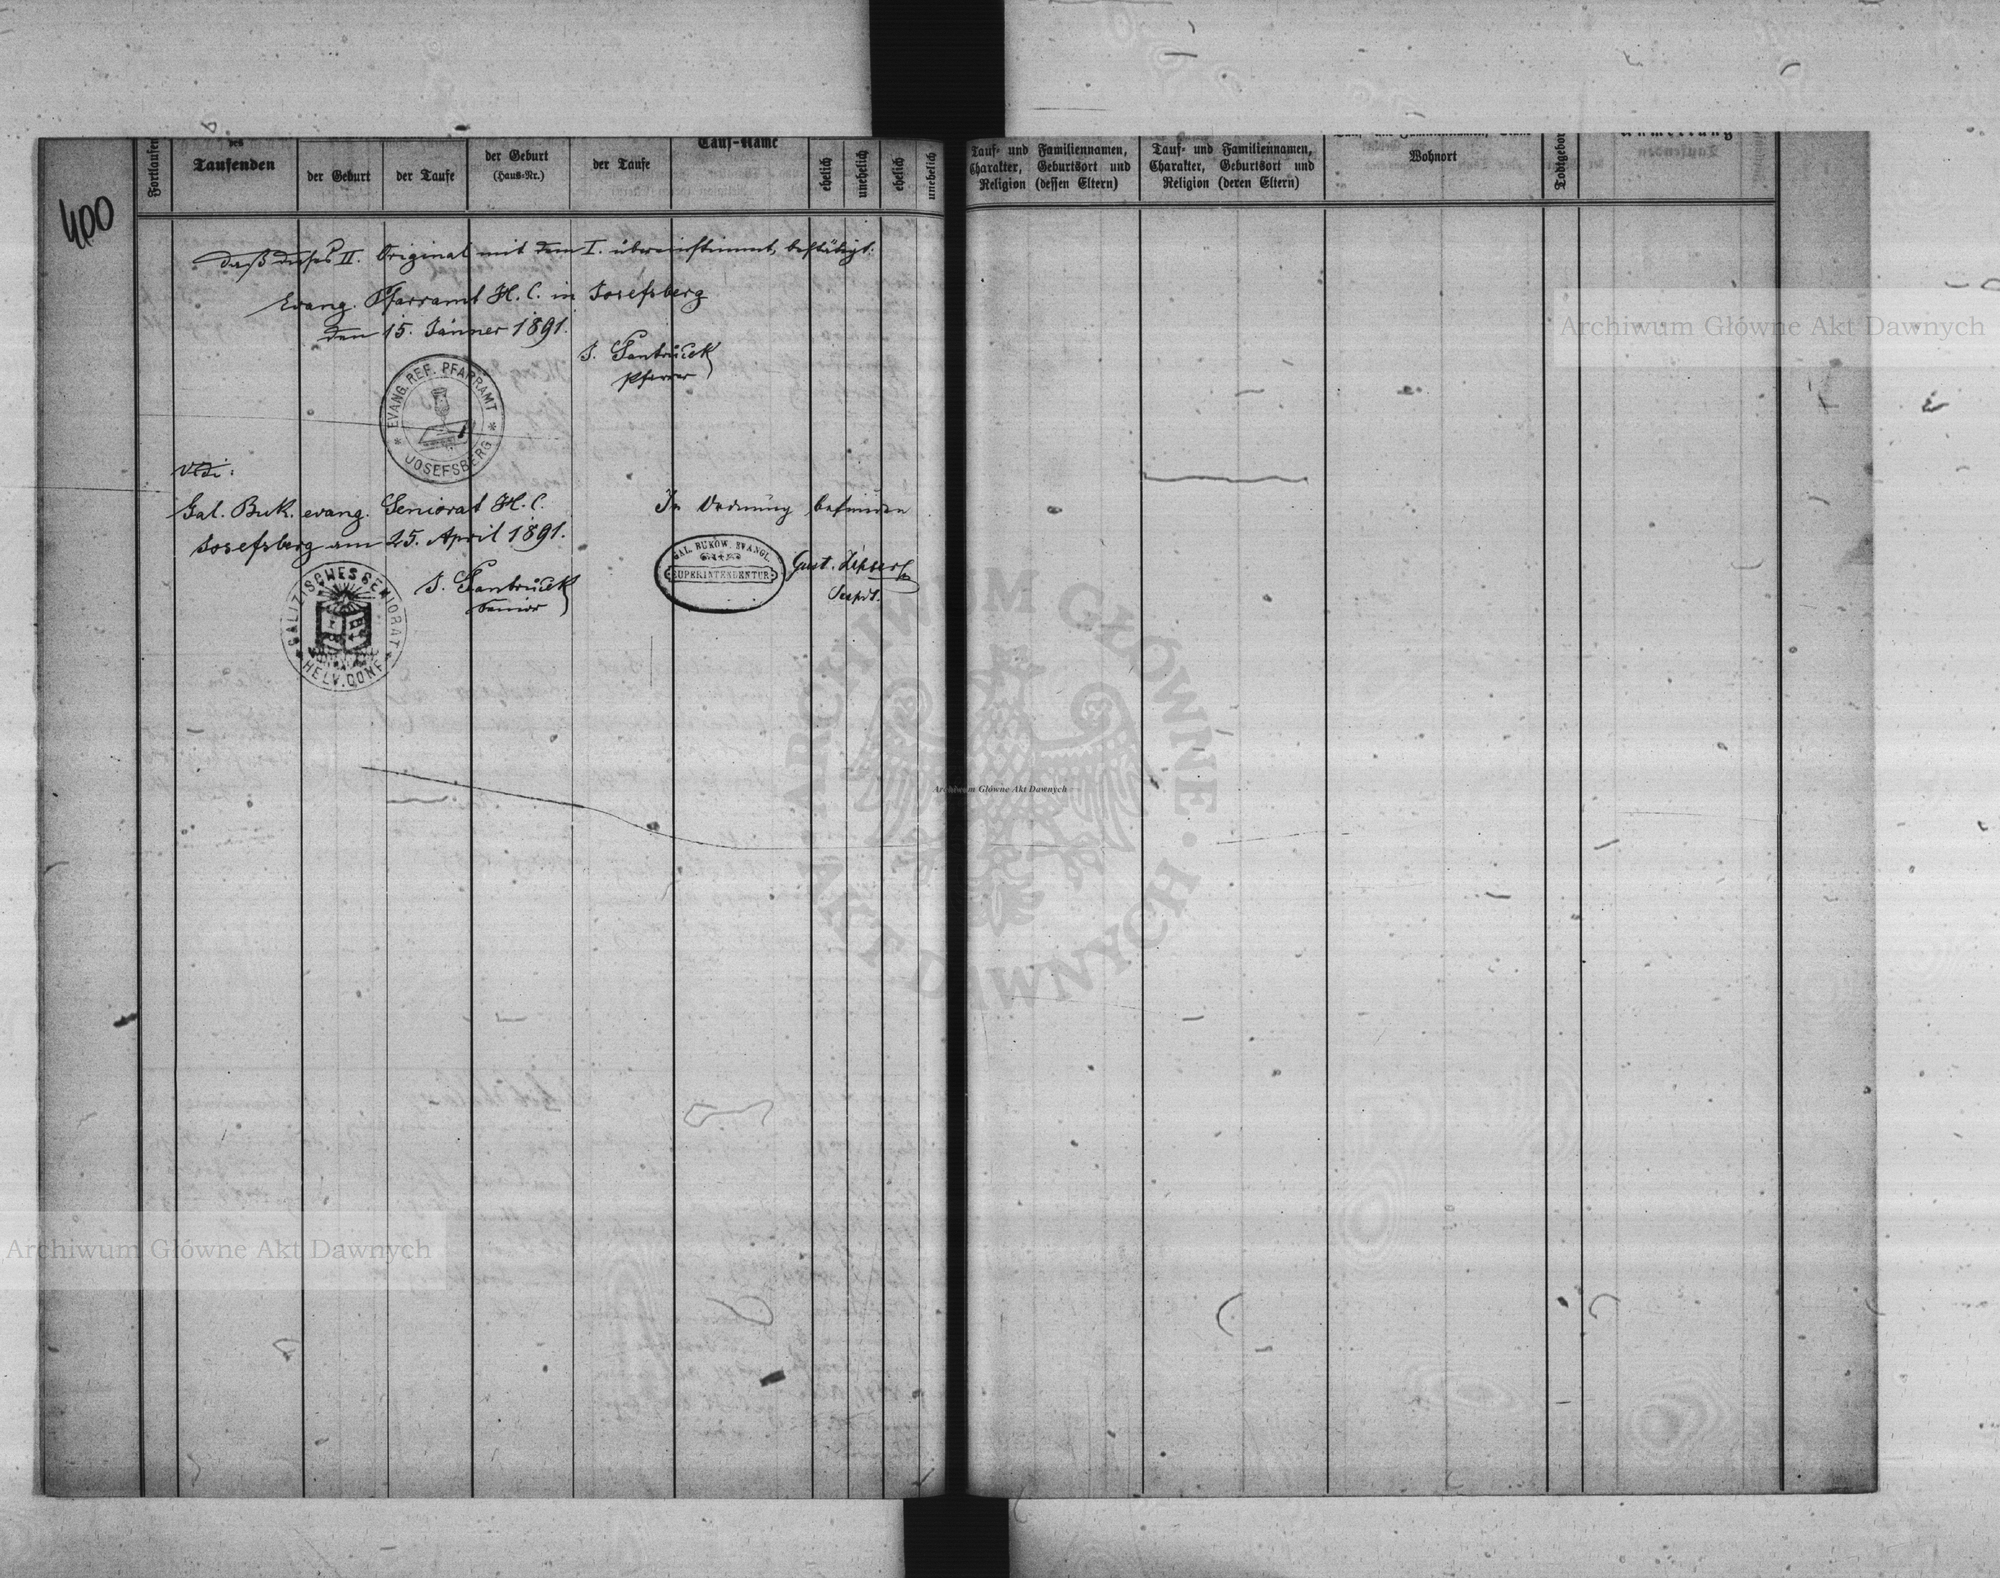 400
Fortlaufen
des
Taufenden
der Geburt
der Taufe
der Geburt
(Haus-Nr.)
der Taufe
Tauf-Name
ehelich
unehelich
ehelich
unehelich
Tauf- und Familiennamen,
Charakter, Geburtsort und
Religion (dessen Eltern)
Tauf- und Familiennamen,
Charakter, Geburtsort und
Religion (deren Eltern)
Wohnort
Todtgebor
Anmerkung
Daß dieses II. Original mit dem I. übereinstimmt, bestätigt:
Evang. Pfarramt H. C. in Josefsberg
den 15. Jänner 1891.
Pfarrer
EVANG. REF. PFARRAMT
* JOSEFSBERG *
Vidi:
Gal. Buk. evang. Seniorat H. C.
Josefsberg am 25. April 1891.
Senior
GALIZISCHES SENIORAT
* HELV. CONF. *
In Ordnung befunden
GAL. BUKOW. EVANGL.
SUPERINTENDENTUR
Gust.
Supdt.
Archiwum Główne Akt Dawnych
ARCHIWUM GŁÓWNE · AKT DAWNYCH ·
Archiwum Główne Akt Dawnych
Archiwum Główne Akt Dawnych